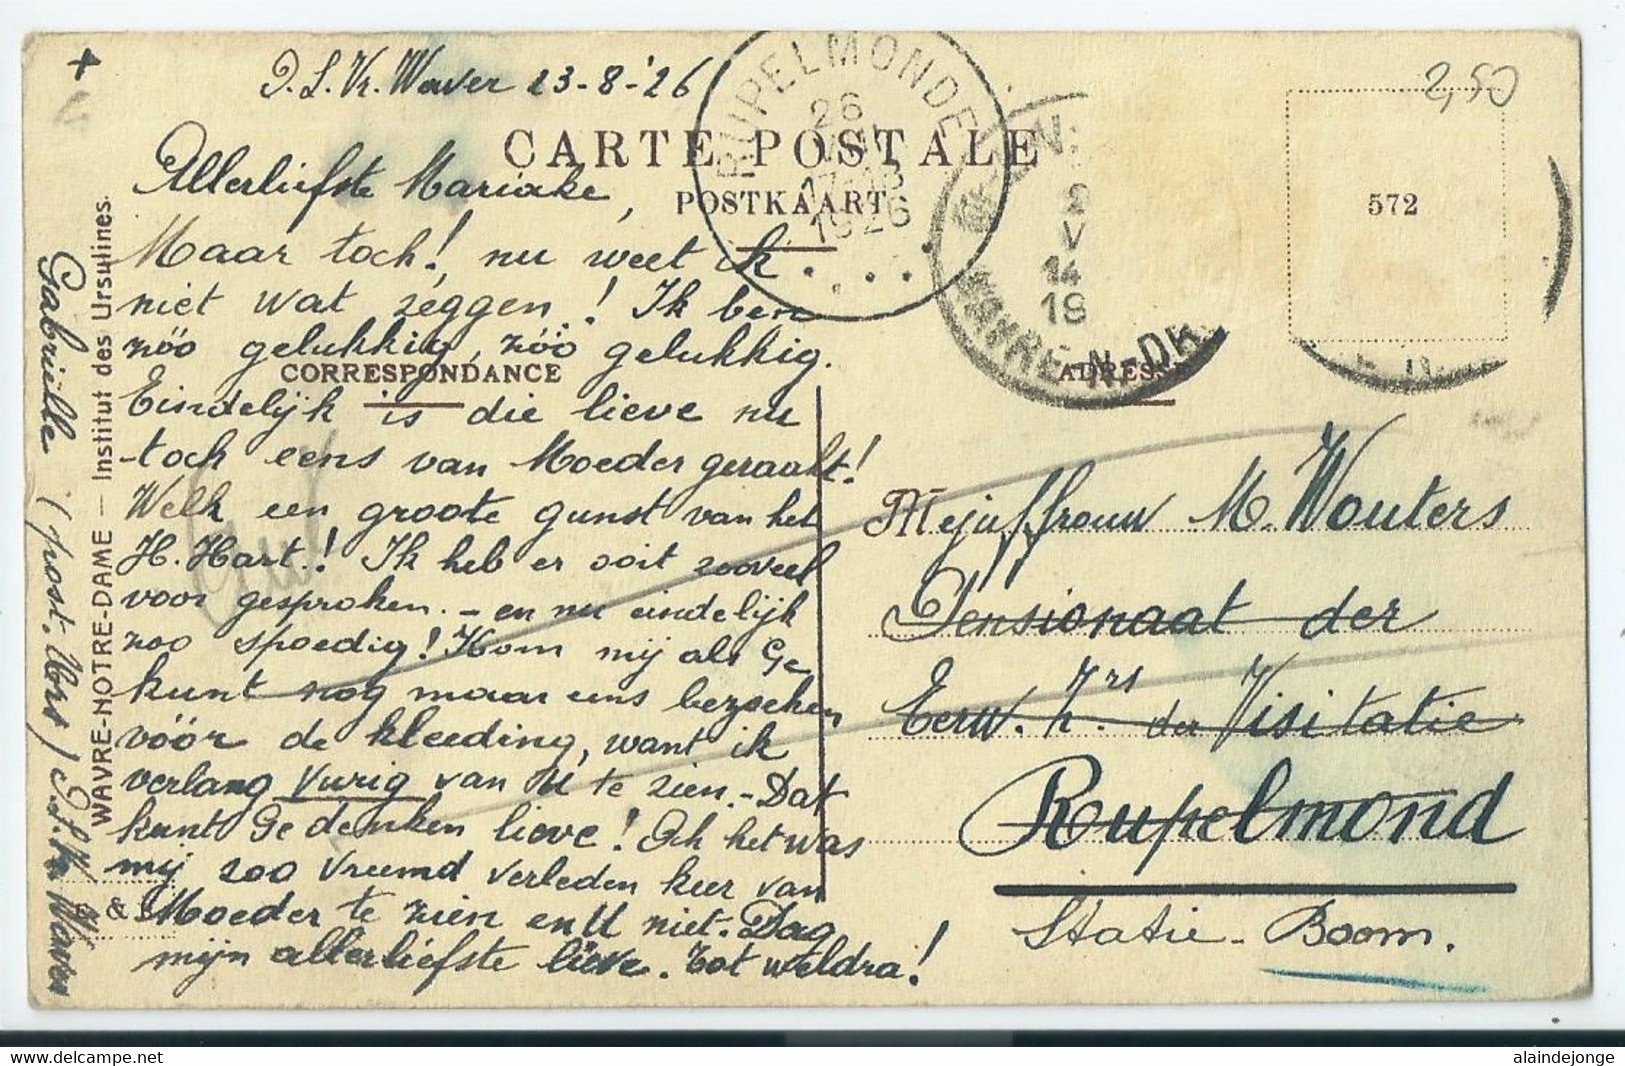 +
O. L. Vr. Waver 23-8-'26
2,50
CARTE POSTALE
POSTKAART
RUPELMONDE
26
1926
WAVRE-N-D
572
Allerliefste Mariake,
Maar toch! nu weet ik
niet wat zéggen! Ik ben
zóó gelukkig, zóó gelukkig.
CORRESPONDANCE
ADRESSE
Eindelijk is die lieve nu
toch eens van Moeder geraakt!
Welk een groote gunst van het
H. Hart! Ik heb er ooit zooveel
voor gesproken. - en nu eindelijk
zoo spoedig! Kom mij als Ge
kunt nog maar eens bezoeken
vóór de kleeding, want ik
verlang vurig van U te zien. - Dat
kunt Ge denken lieve! Och het was
mij zoo vreemd verleden keer van
Moeder te zien en U niet. Dag
mijn allerliefste lieve. Tot weldra!
Mejuffrouw M. Wouters
Pensionaat der
Eerw. Zrs der Visitatie
Rupelmond
Statie - Boom.
WAVRE-NOTRE-DAME — Institut des Ursulines.
Gabriëlle (post. Urs) O. L. Vr Waver
alaindejonge